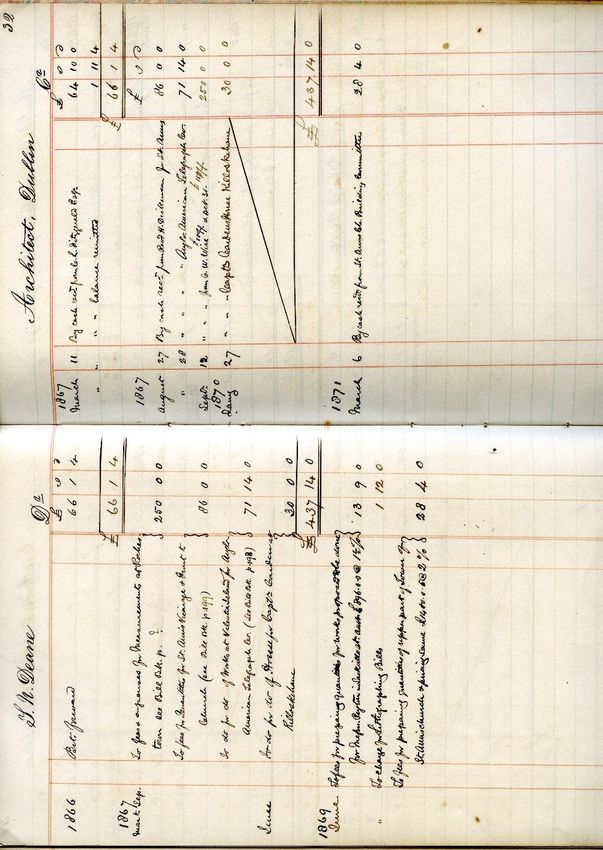 T. N. Deane
Dr
£ s d
1866 Bal. forward 66 1 4
£ 66 1 4
1867
Mar & Sep. To fees & expenses for Measurements at
town see Bill Bk. p. ? 250 0 0
To fees for Quantities for St. Ann's Vicarage & Front to
Church (see Bill Bk. p 299) 86 0 0
To do for do of Works at Valentia Island for Anglo
American Telegraph Co. (see Bill Bk. p 298) 71 14 0
June To do for do of House for Capt. Carden at
Killoskehane 30 0 0
£ 437 14 0
1869
June To fees for preparing quantities for works proposed to be done
for Messrs at St. £896.0.0 @ 1½% 13 9 0
" To charge for lithographing Bills 1 12 0
To fees for preparing quantities of upper part of Tower of
St. Ann's church & pricing same @ 2% 28 4 0
32
Architect, Dublin
Cr
£ s d
1867
March 11 By cash rect from C. L. Fitzgerald Esq. 64 10 0
" " " balance remitted 1 11 4
£ 66 1 4
1867 £ s d
August 27 By cash recd from Revd H. for St. Anns 86 0 0
" 28 " " " " Anglo American Telegraph Co. 71 14 0
Sept. 12 " " " from G. W. Wise & Oct. 31 250 0 0
1870
Jany 27 " " " Capt. Carden Killoskehane 30 0 0
£ 437 14 0
1871
March 6 By cash recd. from St. Anns Ch. Building Committee 28 4 0